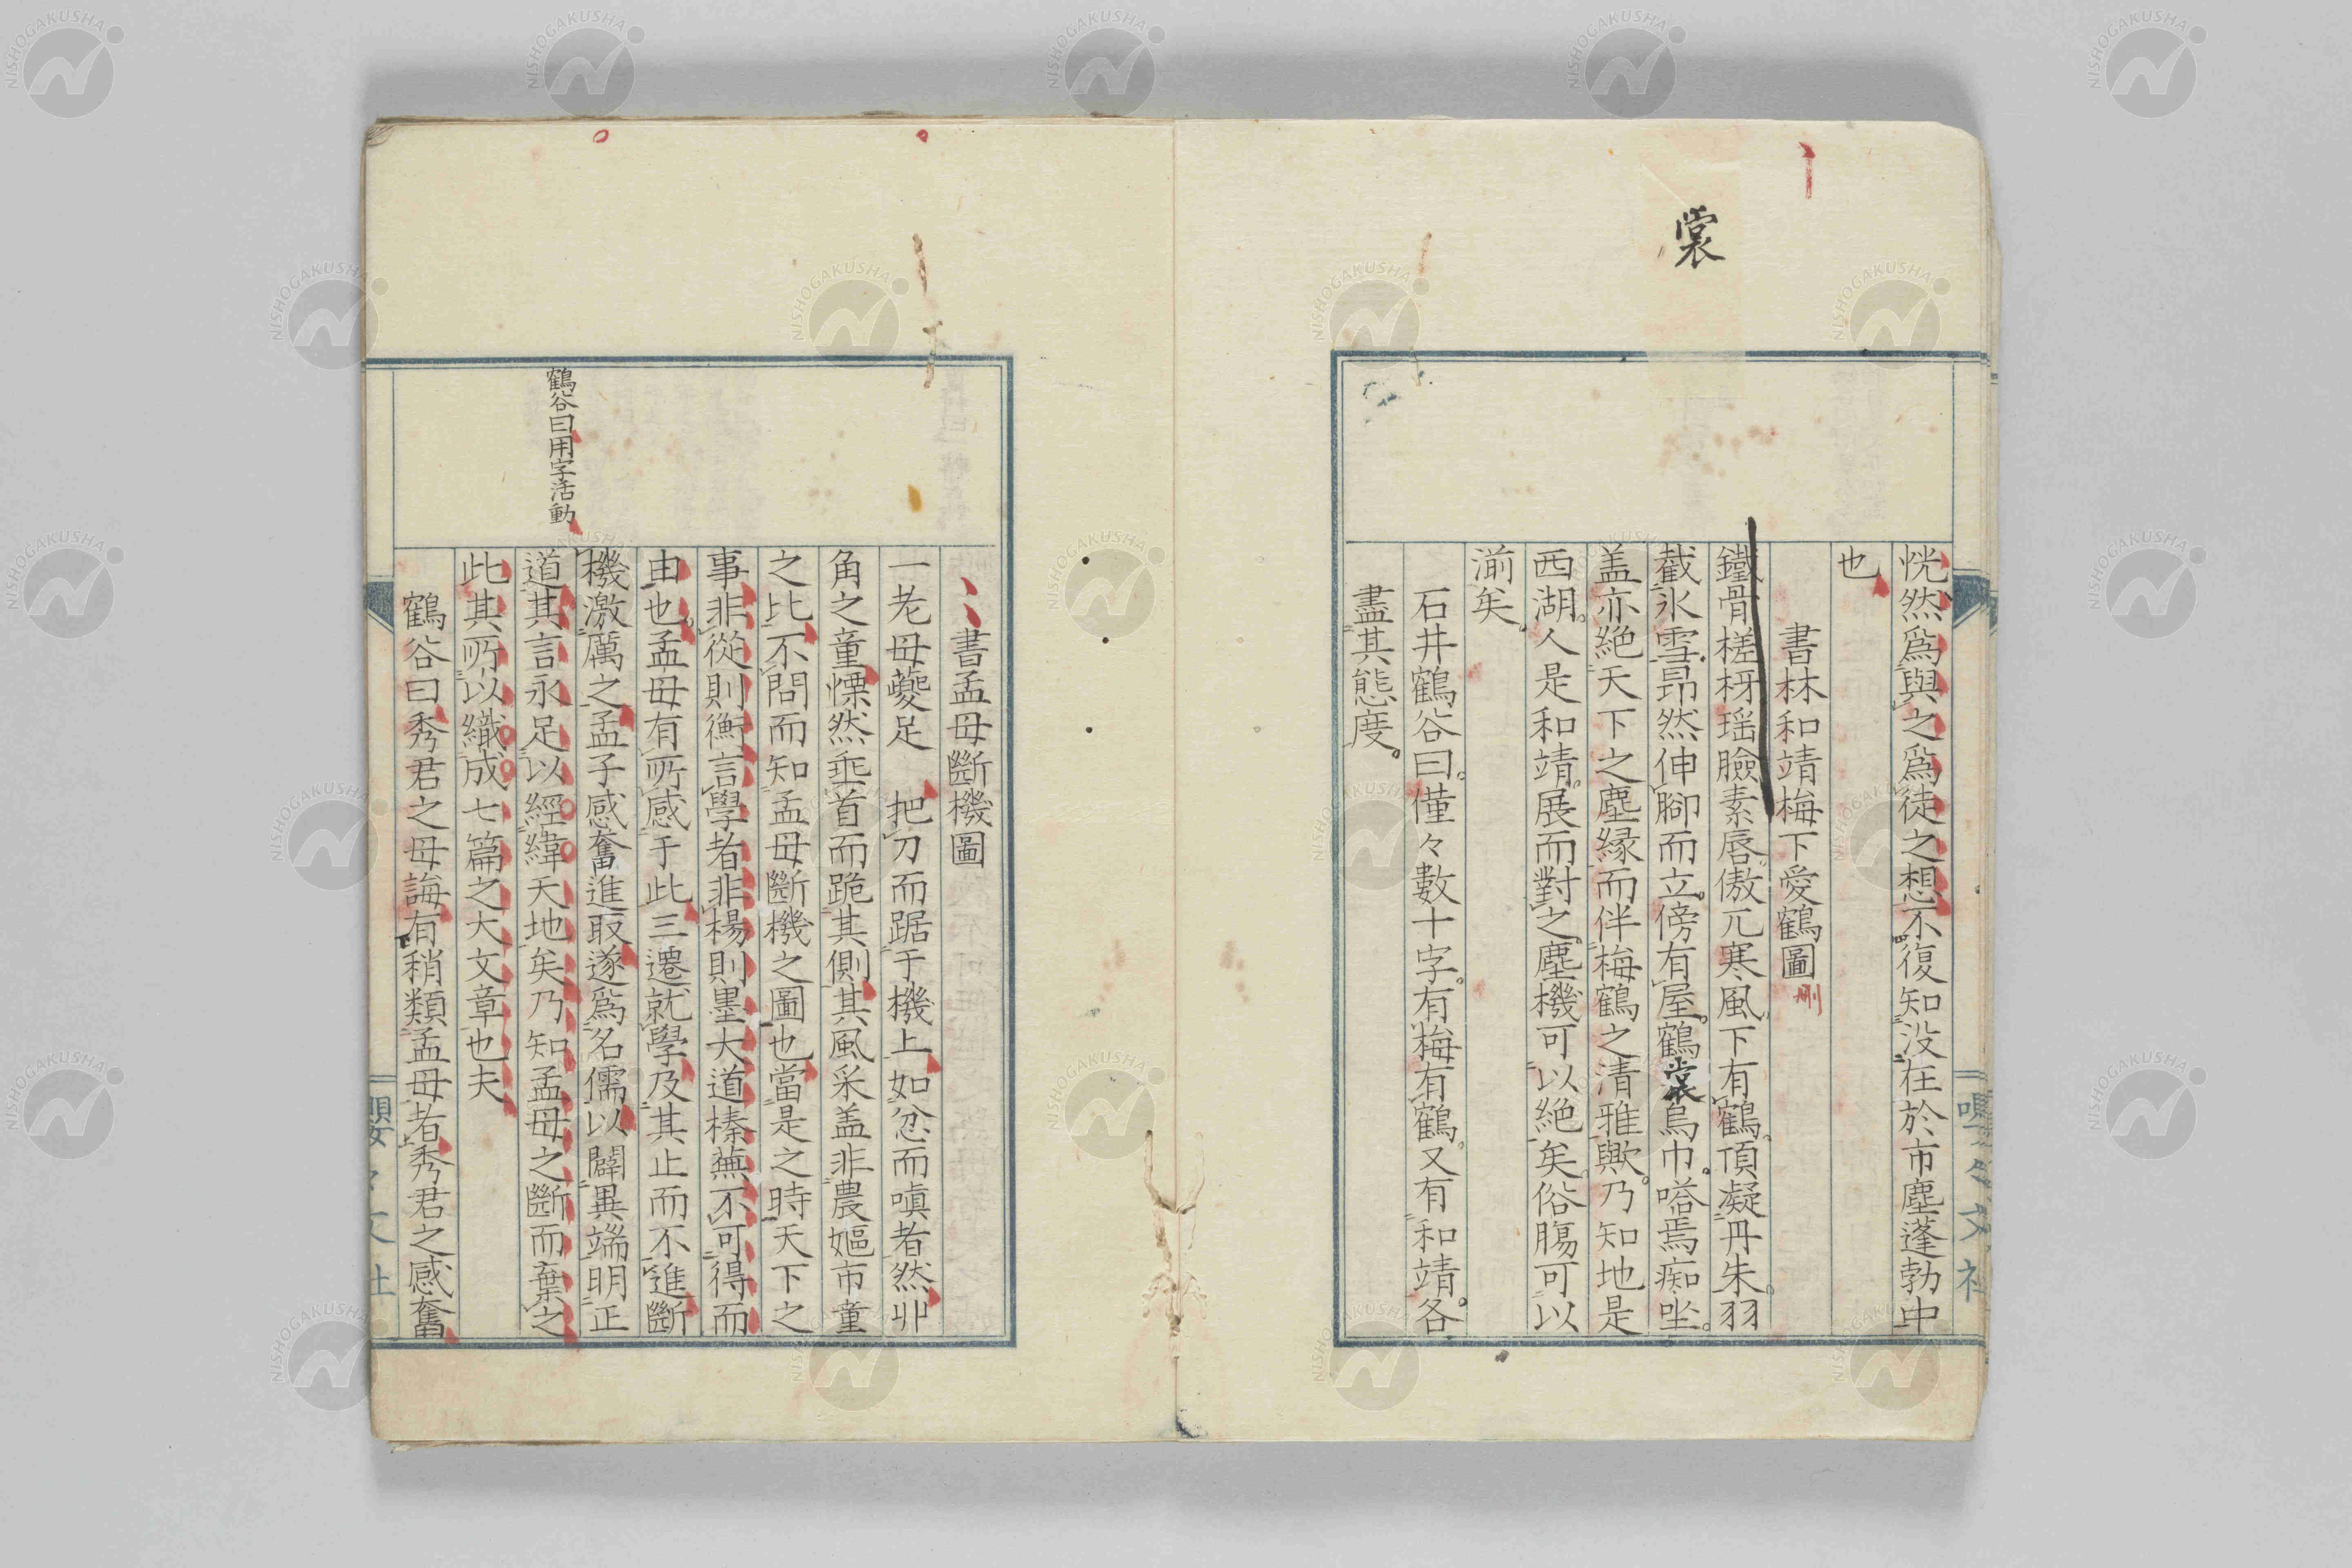 裳
恍然爲與之爲徒之想不復知没在於市塵蓬勃中
也
書林和靖梅下愛鶴圖
刪
鐵骨槎枒瑶臉素唇傲兀寒風下有鶴頂凝丹朱羽
截氷雪昂然伸脚而立傍有屋鶴裳烏巾嗒焉痴坐
盖亦絶天下之塵縁而伴梅鶴之清雅歟乃知地是
西湖人是和靖展而對之塵機可以絶矣俗膓可以
湔矣
石井鶴谷曰僅々數十字有梅有鶴又有和靖各
盡其態度
嚶々文社
書孟母斷機圖
一老母夔足把刀而踞于機上如忿而嗔者然丱
角之童慄然垂首而跪其側其風采盖非農嫗市童
之比不問而知孟母斷機之圖也當是之時天下之
事非從則衡言學者非楊則墨大道榛蕪不可得而
由也孟母有所感于此三遷就學及其止而不進斷
機激厲之孟子感奮進取遂爲名儒以闢異端明正
鶴谷曰用字活動
道其言永足以經緯天地矣乃知孟母之斷而棄之
此其所以織成七篇之大文章也夫
鶴谷曰秀君之母誨有稍類孟母者秀君之感奮
嚶々文社
NISHOGAKUSHA